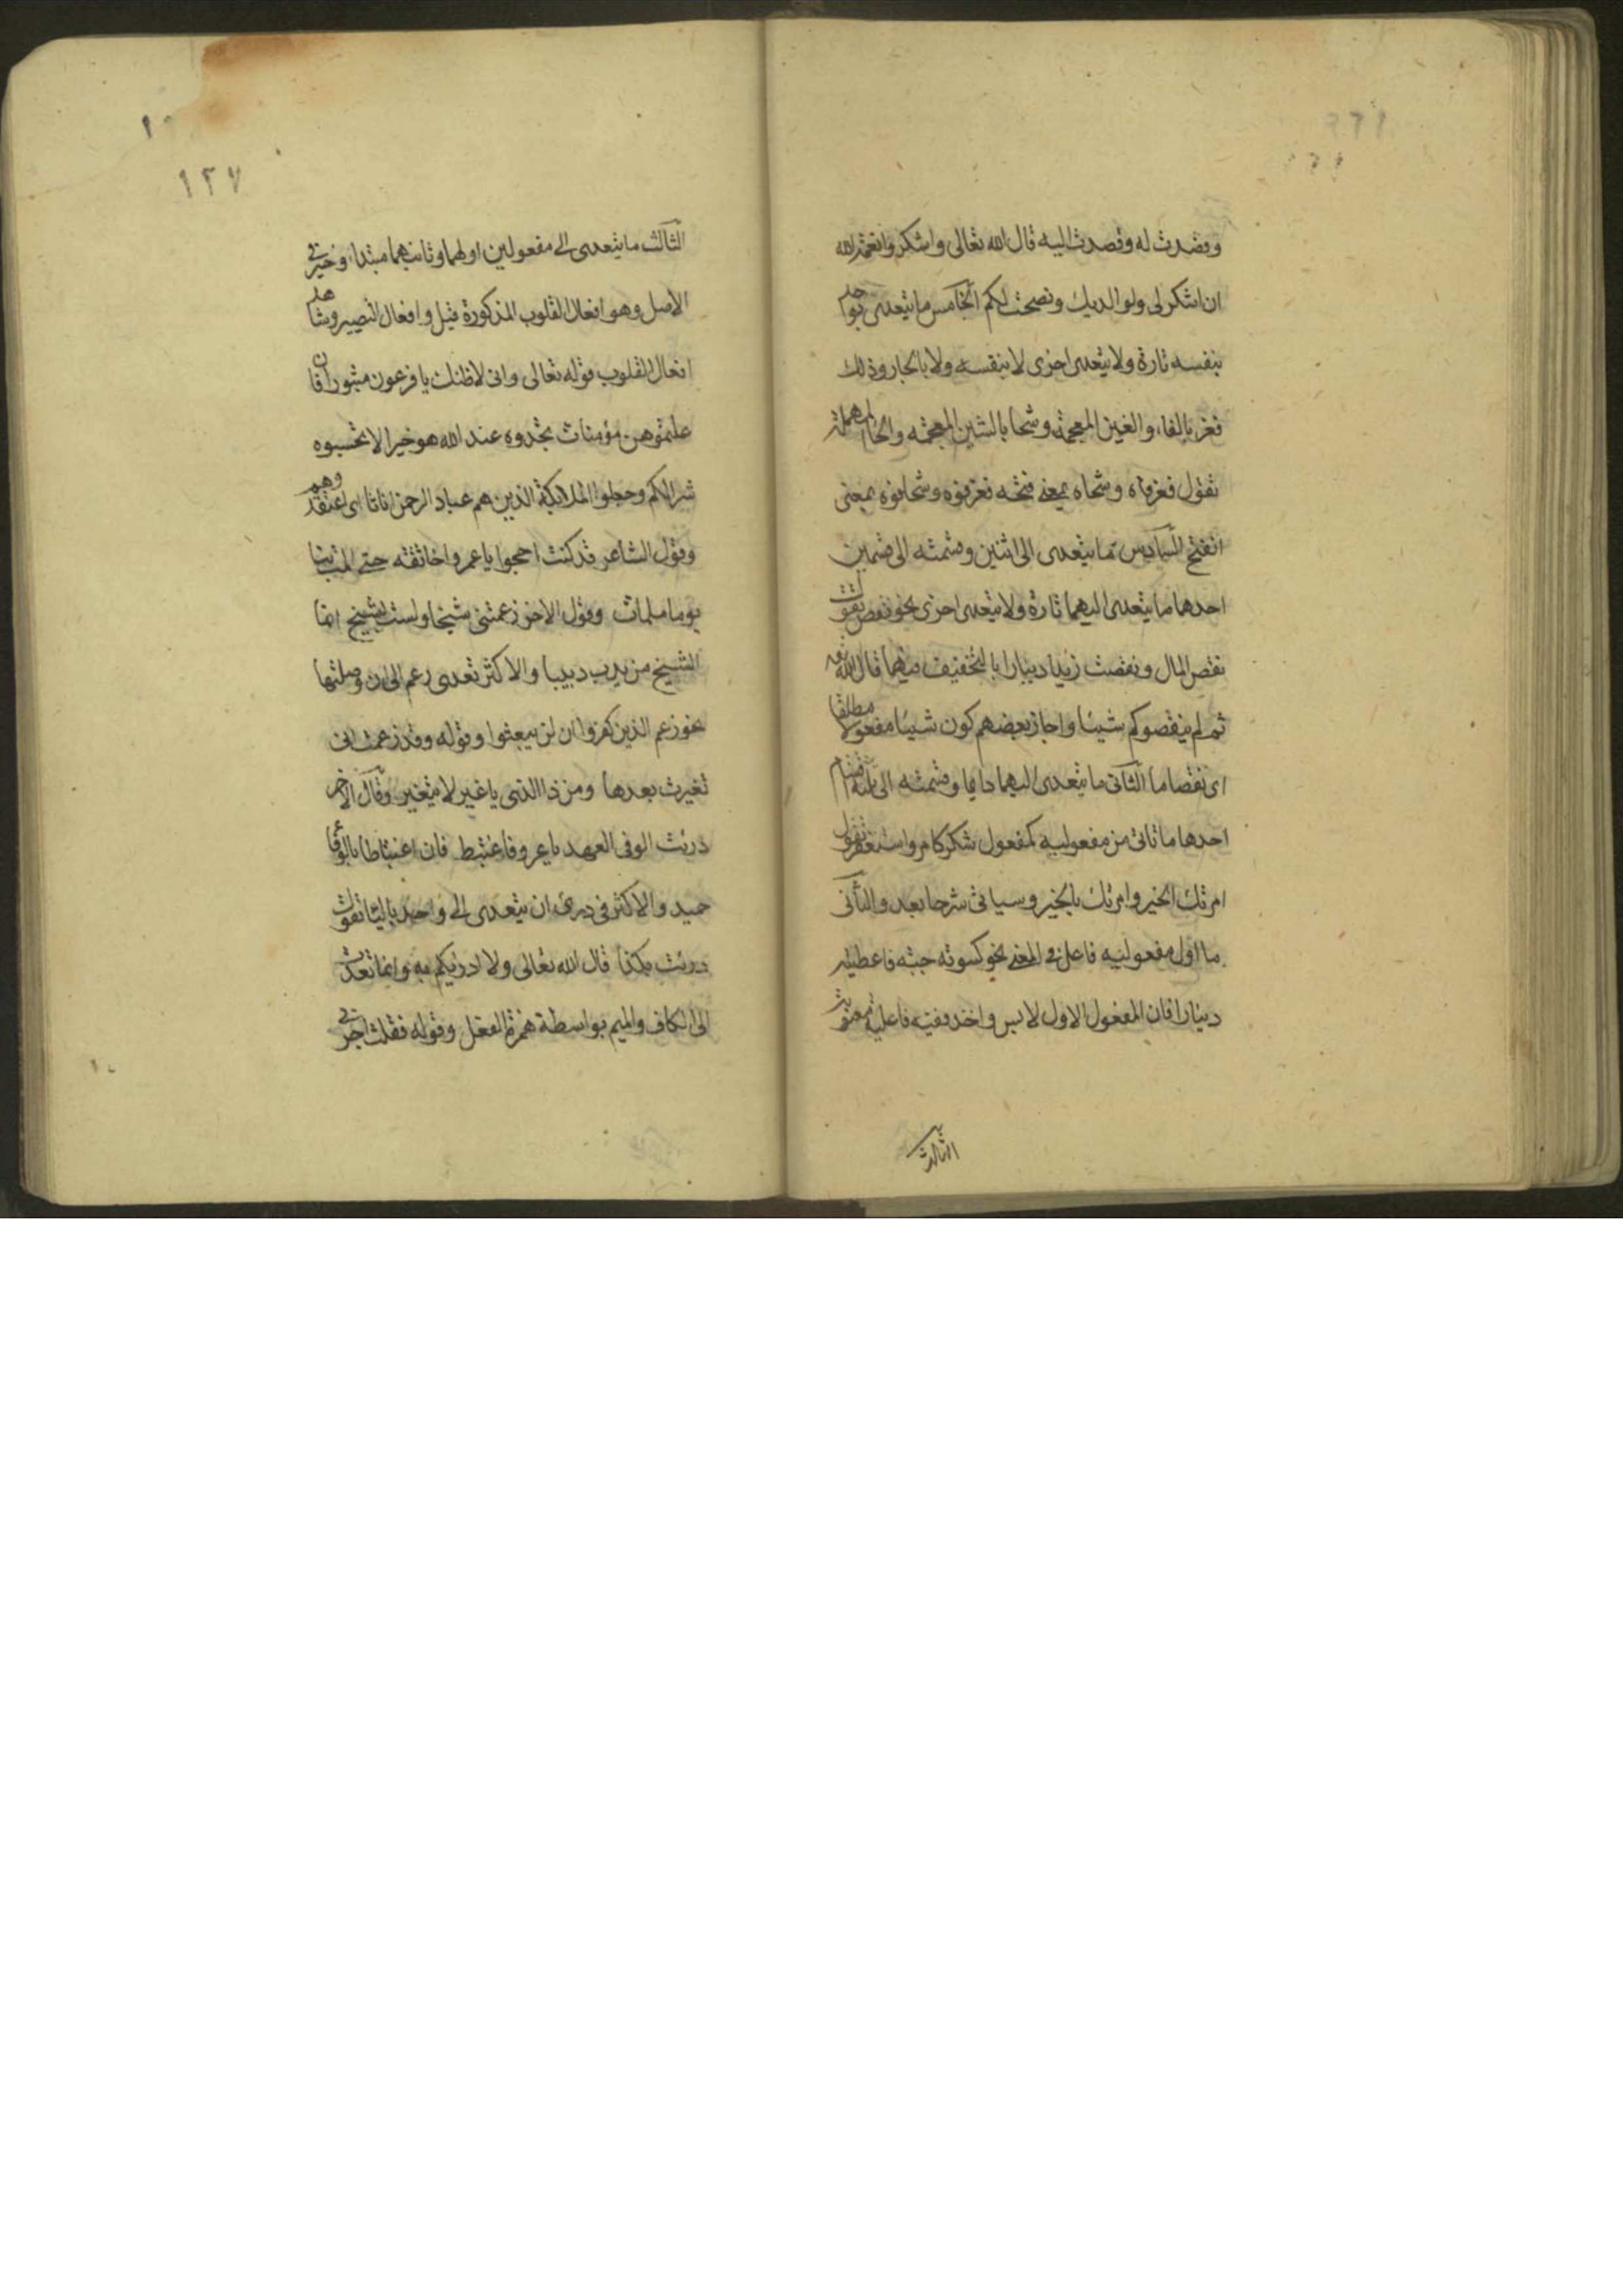 وقصدت له وقصدت اليه قال الله تعالى واشكروا نعمة الله
ان اشكر لى ولوالديك ونصحت لكم الخامس ما يتعدى لواحد
بنفسه تارة ولا يتعدى اخرى لا بنفسه ولا بالجار وذلك
فغر بالفاء والغين المعجمة وشحا بالشين المعجمة والحا المهملة
تقول فغر فاه وشحاه بمعنى فتحه فغر فوه وشحا فوه بمعنى
انفتح السادس ما يتعدى الى اثنين وقسمته الى قسمين
احدها ما يتعدى اليهما تارة ولا يتعدى اخرى نحو نقص تقول
نقص المال ونقصت زيدا دينارا بالتخفيف فيهما قال الله تع
ثم لم ينقصوكم شيئا واجاز بعضهم كون شيئا مفعولا مطلقا
اى نقصا ما الثانى ما يتعدى اليهما دايما وقسمته الى ثلثة اقسام
احدها ما ثانى من مفعوليه كمفعول شكر كامر واستغفر تقول
امرتك الخير وامرتك بالخير وسياتى شرحها بعد والثانى
ما اول مفعوليه فاعل فى المعنى نحو كسوته جبة فاعطيته
دينارا فان المفعول الاول لابس واخذ ففيه فاعلية معنوية
الثالث
١٢٧
الثالث ما يتعدى الى مفعولين اولهما وثانيهما مبتدا وخبر فى
الاصل وهو افعال القلوب المذكورة قبل وافعال التصيير وشاهد
افعال القلوب قوله تعالى وانى لاظنك يا فرعون مثبورا فان
علمتموهن مؤمنات تجدوه عند الله هو خيرا لا تحسبوه
شرا لكم وجعلوا الملائكة الذين هم عباد الرحمن اناثا اى اعتقدوهم
وقول الشاعر قد كنت احجوا با عمرو اخا ثقة حتى المت بنا
يوما ملمات وقول الاخر زعمتنى شيخا ولست بشيخ انما
الشيخ من يدب دبيبا والاكثر تعدى زعم الى ان وصلتها
نحو زعم الذين كفروا ان لن يبعثوا وقوله وقد زعمت انى
تغيرت بعدها ومن ذا الذى يا عز لا يتغير وقال الاخر
دريت الوفى العهد يا عرو فاغتبط فان اغتباطا بالوفاء
حميد والاكثر فى درى ان يتعدى الى واحد بالبا تقول
دريت بكذا قال الله تعالى ولا ادريكم به وانما تعدت
الى الكاف والميم بواسطة همزة النقل وقوله فقلت اجرنى